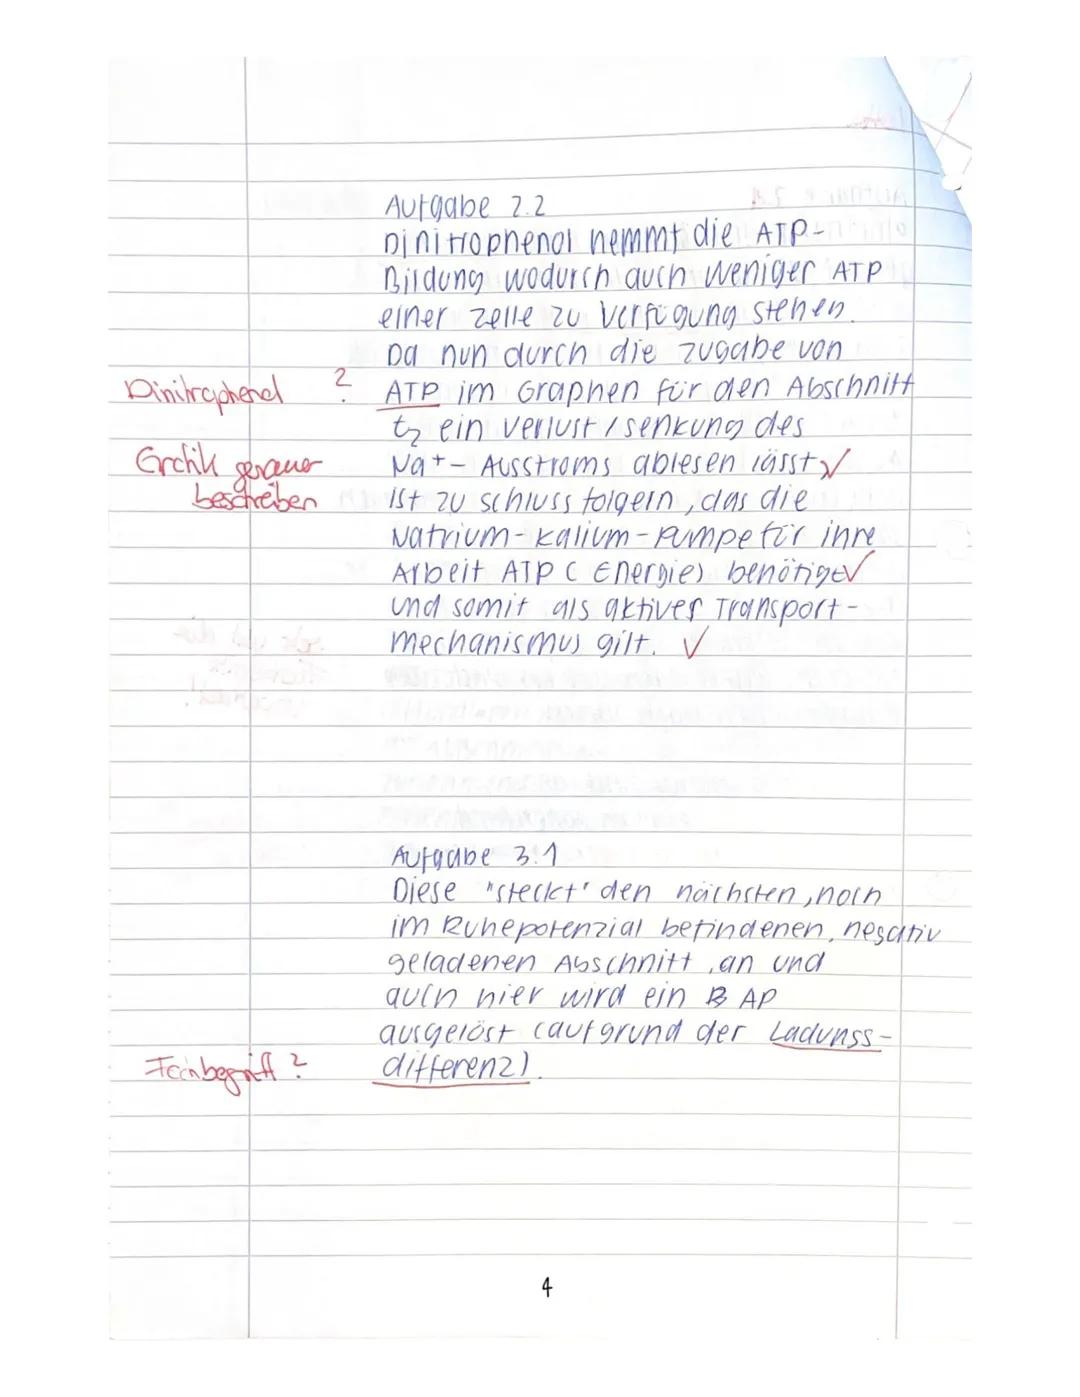 Aufgabe 2.2
Dinitrophenol hemmt die ATP-
Bildung wodurch auch weniger ATP
einer Zelle zu Verfügung stehen.
Da nun durch die Zugabe von
Dinitrophenol ? ATP im Graphen für den Abschnitt
t₂ ein Verlust / senkung des
Grafik genauer Na⁺- Ausstroms ablesen lässt ✓
beschreiben ist zu schluss folgern, das die
Natrium-Kalium-Pumpe für ihre
Arbeit ATP (Energie) benötigt ✓
und somit als aktiver Transport-
mechanismus gilt. ✓
Aufgabe 3.1
Diese "steckt" den nächsten, noch
im Ruhepotenzial befindenen, negativ
geladenen Abschnitt, an und
auch hier wird ein AP
ausgelöst (aufgrund der Ladungs-
Fachbegriff? differenz).
4